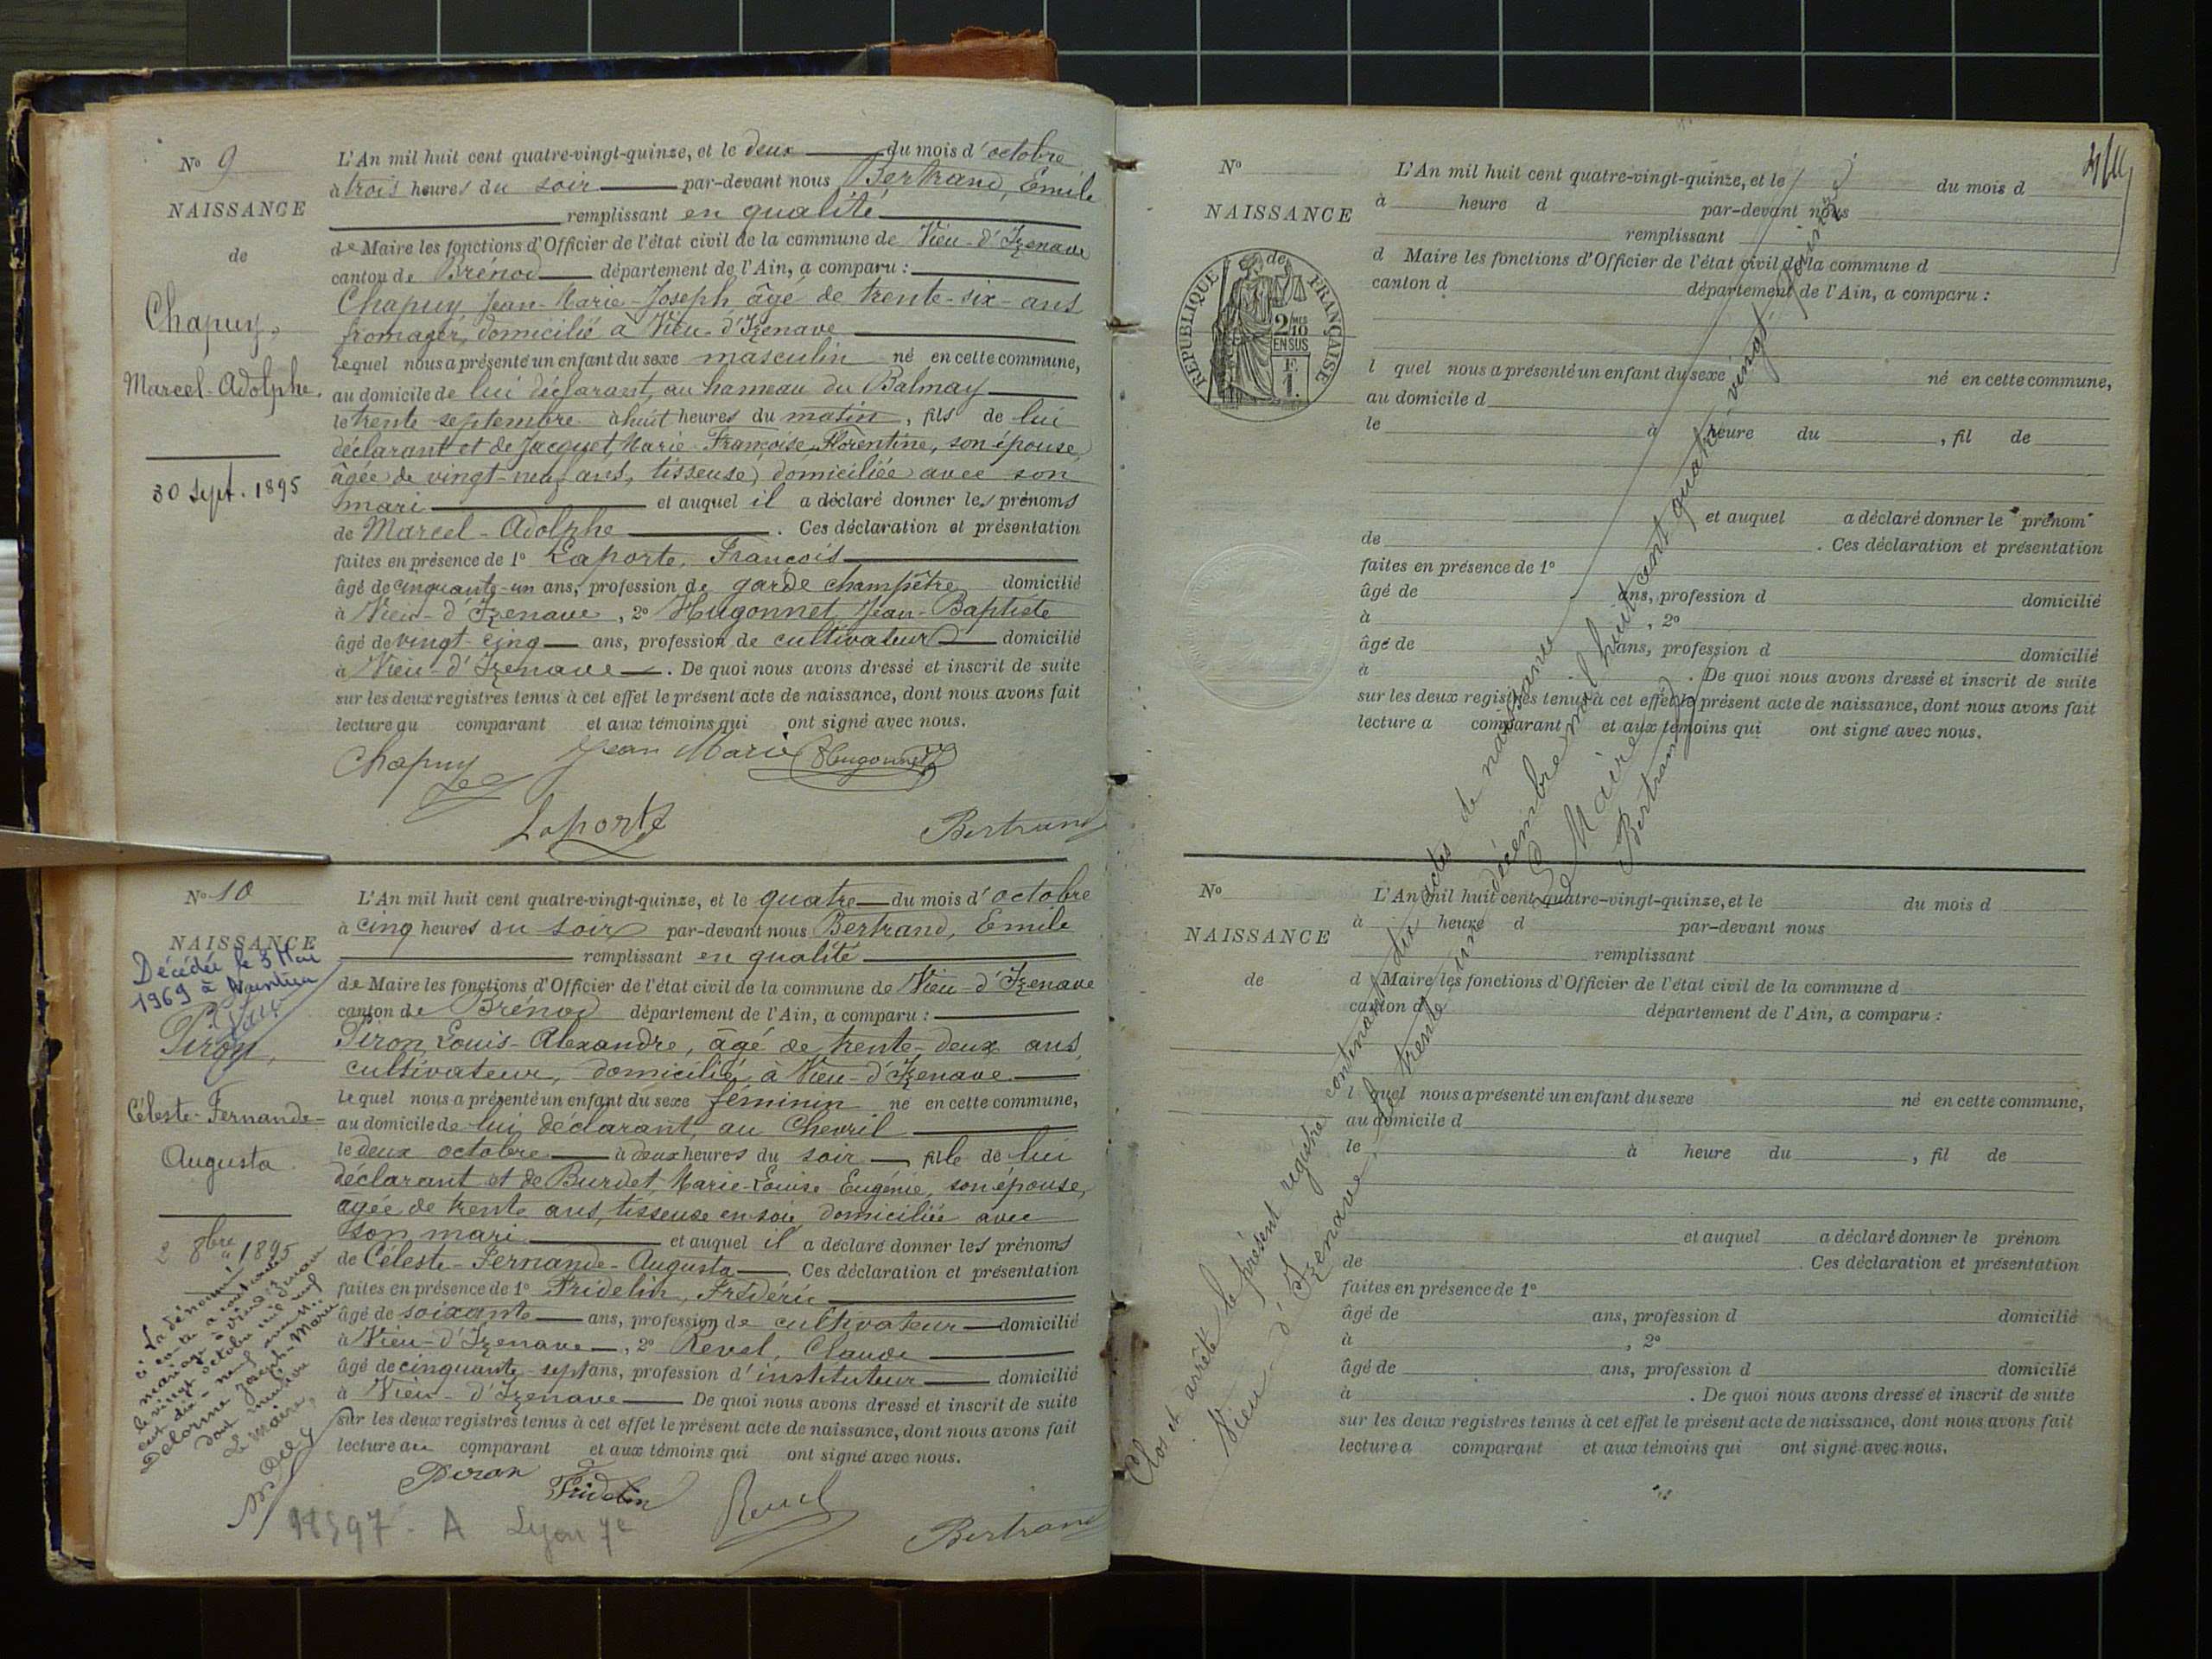 Nº 9
NAISSANCE
de
Chapuy,
Marcel-Adolphe.
30 Sept. 1895
L'An mil huit cent quatre-vingt-quinze, et le deux du mois d'octobre
à trois heures du soir par-devant nous Bertrand, Emile
remplissant en qualité
de Maire les fonctions d'Officier de l'état civil de la commune de Vieu-d'Izenave
canton de Brénod département de l'Ain, a comparu :
Chapuy Jean-Marie-Joseph âgé de trente-six-ans
fromager, domicilié à Vieu-d'Izenave
lequel nous a présenté un enfant du sexe masculin né en cette commune,
au domicile de lui déclarant, au hameau du Balmay
le trente septembre à huit heures du matin, fils de lui
déclarant et de Jacquet, Marie-Françoise, Florentine, son épouse,
âgée de vingt-neuf ans, tisseuse, domiciliée avec son
mari et auquel il a déclaré donner les prénoms
de Marcel-Adolphe . Ces déclaration et présentation
faites en présence de 1º Laporte, François
âgé de cinquante-un ans, profession de garde champêtre domicilié
à Vieu-d'Izenave, 2º Hugonnet, Jean-Baptiste
âgé de vingt-cinq ans, profession de cultivateur domicilié
à Vieu-d'Izenave . De quoi nous avons dressé et inscrit de suite
sur les deux registres tenus à cet effet le présent acte de naissance, dont nous avons fait
lecture au comparant et aux témoins qui ont signé avec nous.
Chapuy Jean Marie Hugonnet
Laporte Bertrand
Nº 10
NAISSANCE
Décédée le 5 Mai
1969 à Nantua
Piron,
Céleste-Fernande-
Augusta.
2 8bre 1895
La dénommée
ci-contre a contracté
mariage à Vieu-d'Izenave
le vingt octobre mil neuf
cent dix-neuf avec
Delorme Joseph-Marie
dont mention
Le Maire,
L'An mil huit cent quatre-vingt-quinze, et le quatre du mois d'octobre
à cinq heures du soir par-devant nous Bertrand, Emile
remplissant en qualité
de Maire les fonctions d'Officier de l'état civil de la commune de Vieu-d'Izenave
canton de Brénod département de l'Ain, a comparu :
Piron, Louis-Alexandre, âgé de trente-deux ans,
cultivateur, domicilié à Vieu-d'Izenave.
lequel nous a présenté un enfant du sexe féminin né en cette commune,
au domicile de lui déclarant, au Chevril
le deux octobre à deux heures du soir, fille de lui
déclarant et de Burdet, Marie-Louise Eugénie, son épouse,
âgée de trente ans, tisseuse en soie, domiciliée avec
son mari et auquel il a déclaré donner les prénoms
de Céleste-Fernande-Augusta . Ces déclaration et présentation
faites en présence de 1º Fridelin, Frédéric
âgé de soixante ans, profession de cultivateur domicilié
à Vieu-d'Izenave, 2º Revel, Claude
âgé de cinquante-sept ans, profession d'instituteur domicilié
à Vieu-d'Izenave De quoi nous avons dressé et inscrit de suite
sur les deux registres tenus à cet effet le présent acte de naissance, dont nous avons fait
lecture au comparant et aux témoins qui ont signé avec nous.
Piron Fridelin Revel Bertrand
A Lyon 7e
Nº
NAISSANCE
RÉPUBLIQUE FRANÇAISE
2/10
EN SUS
F.
1.
L'An mil huit cent quatre-vingt-quinze, et le du mois d
à heure d par-devant nous
remplissant
d Maire les fonctions d'Officier de l'état civil de la commune d
canton d département de l'Ain, a comparu :
l quel nous a présenté un enfant du sexe né en cette commune,
au domicile d
le à heure du , fil de
et auquel a déclaré donner le prénom
de . Ces déclaration et présentation
faites en présence de 1º
âgé de ans, profession d domicilié
à , 2º
âgé de ans, profession d domicilié
à . De quoi nous avons dressé et inscrit de suite
sur les deux registres tenus à cet effet le présent acte de naissance, dont nous avons fait
lecture a comparant et aux témoins qui ont signé avec nous.
Clos et arrêté le présent registre contenant dix actes de naissance
Vieu-d'Izenave, le trente un décembre mil huit cent quatre vingt quinze
Le Maire
Bertrand
Nº
NAISSANCE
de
L'An mil huit cent quatre-vingt-quinze, et le du mois d
à heure d par-devant nous
remplissant
d Maire les fonctions d'Officier de l'état civil de la commune d
canton d département de l'Ain, a comparu :
l quel nous a présenté un enfant du sexe né en cette commune,
au domicile d
le à heure du , fil de
et auquel a déclaré donner le prénom
de . Ces déclaration et présentation
faites en présence de 1º
âgé de ans, profession d domicilié
à , 2º
âgé de ans, profession d domicilié
à . De quoi nous avons dressé et inscrit de suite
sur les deux registres tenus à cet effet le présent acte de naissance, dont nous avons fait
lecture a comparant et aux témoins qui ont signé avec nous.